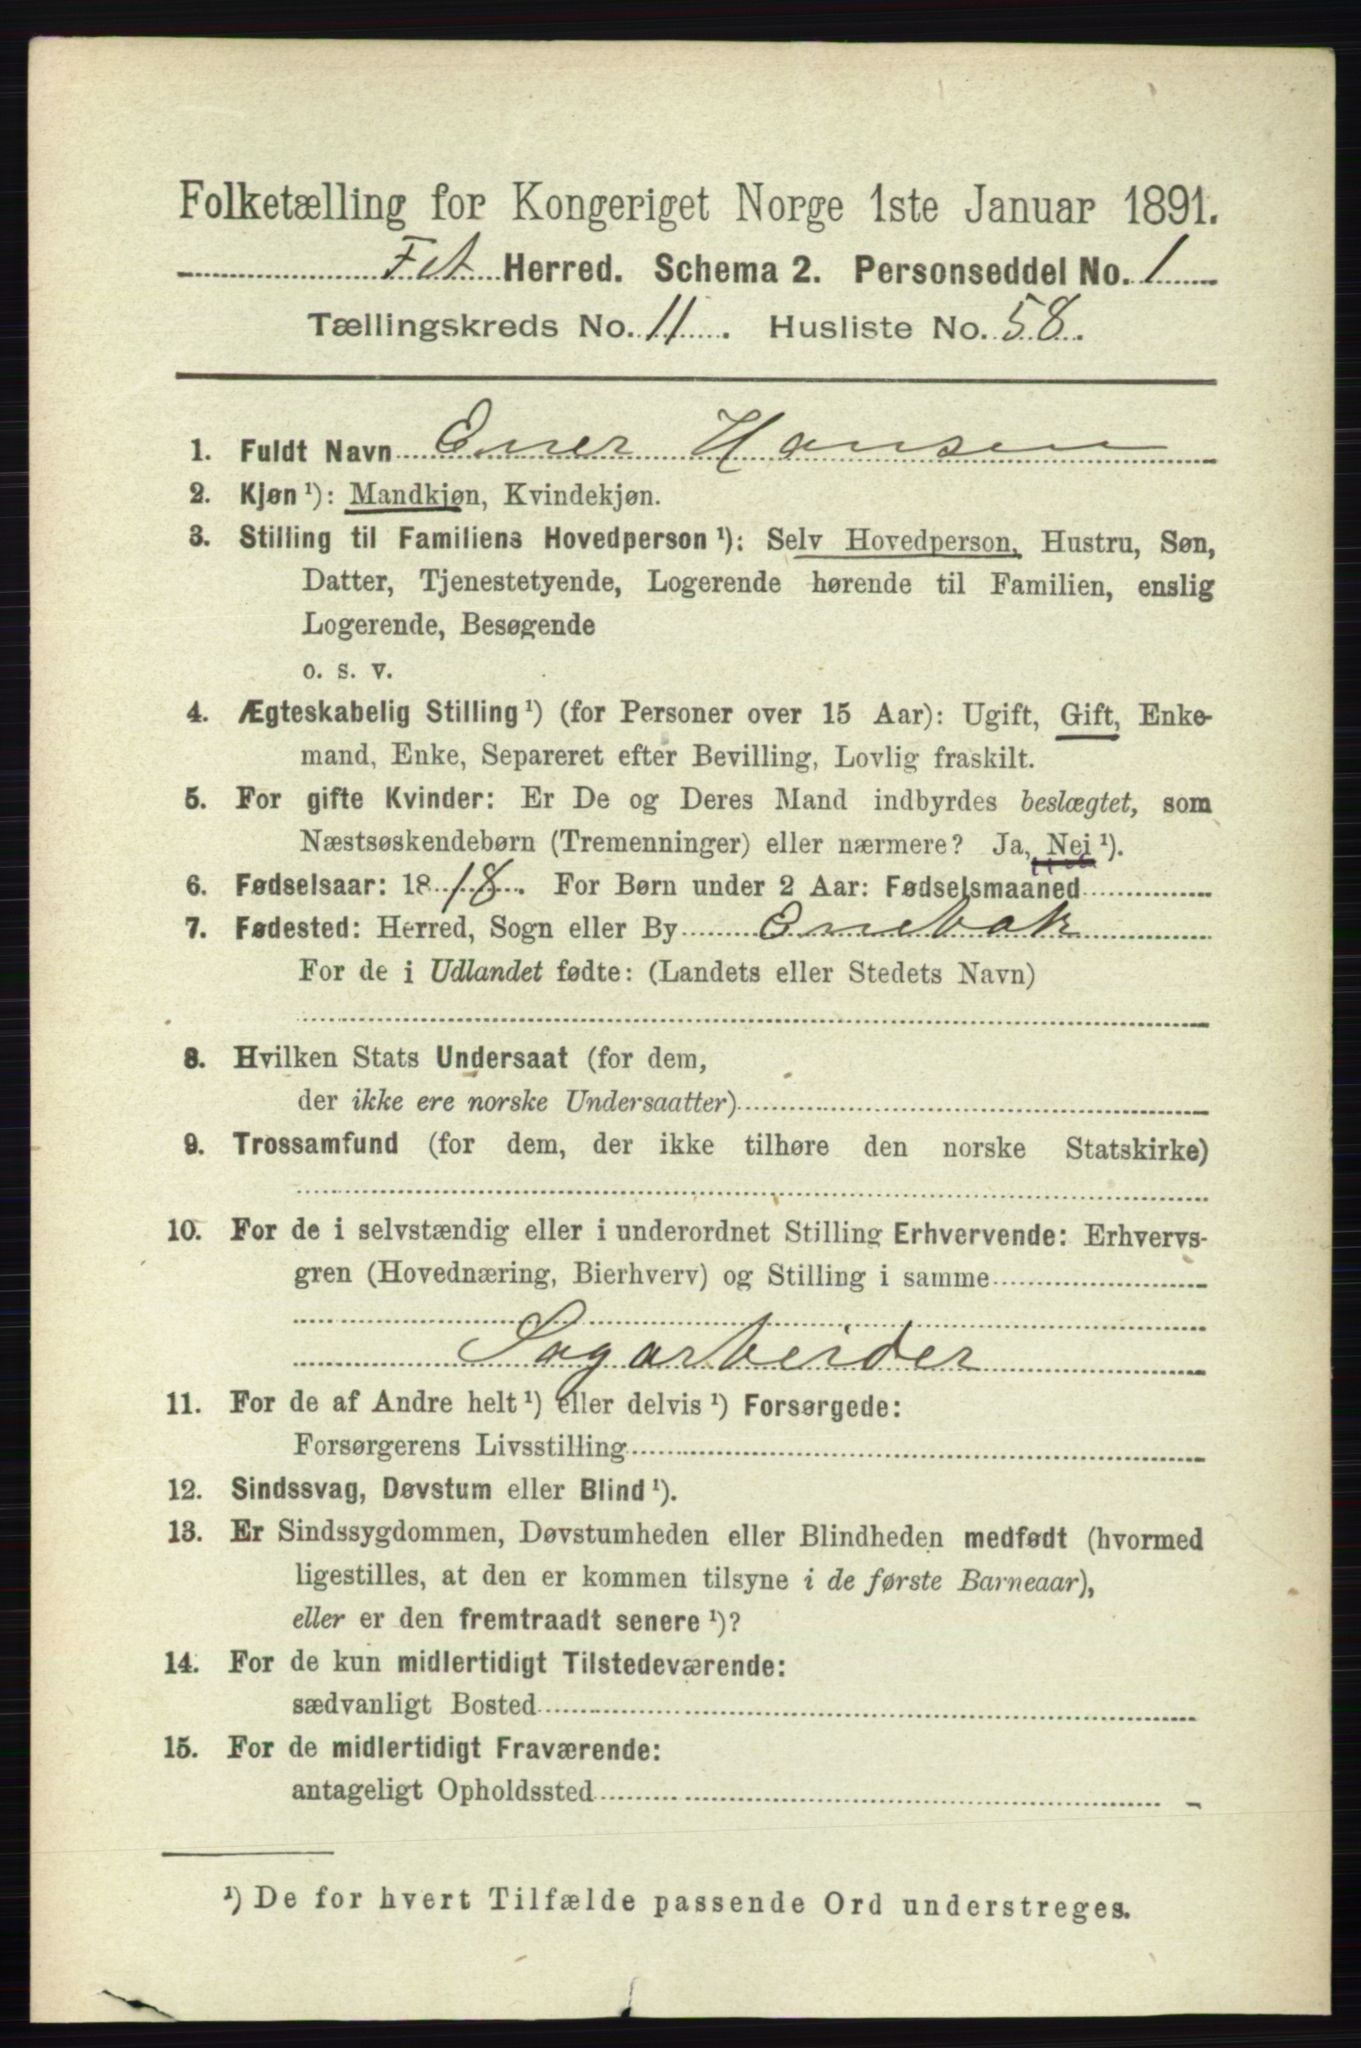 Folketælling for Kongeriget Norge 1ste Januar 1891.
Fet Herred. Schema 2. Personseddel No. 1
Tællingskreds No. 11. Husliste No. 58.
1. Fuldt Navn Ener Hansen
2. Kjøn ¹): Mandkjøn, Kvindekjøn.
3. Stilling til Familiens Hovedperson ¹): Selv Hovedperson, Hustru, Søn,
Datter, Tjenestetyende, Logerende hørende til Familien, enslig
Logerende, Besøgende
o. s. v.
4. Ægteskabelig Stilling ¹) (for Personer over 15 Aar): Ugift, Gift, Enke-
mand, Enke, Separeret efter Bevilling, Lovlig fraskilt.
5. For gifte Kvinder: Er De og Deres Mand indbyrdes beslægtet, som
Næstsøskendebørn (Tremenninger) eller nærmere? Ja, Nei ¹).
6. Fødselsaar: 1818. For Børn under 2 Aar: Fødselsmaaned
7. Fødested: Herred, Sogn eller By Enebak
For de i Udlandet fødte: (Landets eller Stedets Navn)
8. Hvilken Stats Undersaat (for dem,
der ikke ere norske Undersaatter)
9. Trossamfund (for dem, der ikke tilhøre den norske Statskirke)
10. For de i selvstændig eller i underordnet Stilling Erhvervende: Erhvervs-
gren (Hovednæring, Bierhverv) og Stilling i samme
Sagarbeider
11. For de af Andre helt ¹) eller delvis ¹) Forsørgede:
Forsørgerens Livsstilling
12. Sindssvag, Døvstum eller Blind ¹).
13. Er Sindssygdommen, Døvstumheden eller Blindheden medfødt (hvormed
ligestilles, at den er kommen tilsyne i de første Barneaar),
eller er den fremtraadt senere ¹)?
14. For de kun midlertidigt Tilstedeværende:
sædvanligt Bosted
15. For de midlertidigt Fraværende:
antageligt Opholdssted
¹) De for hvert Tilfælde passende Ord understreges.